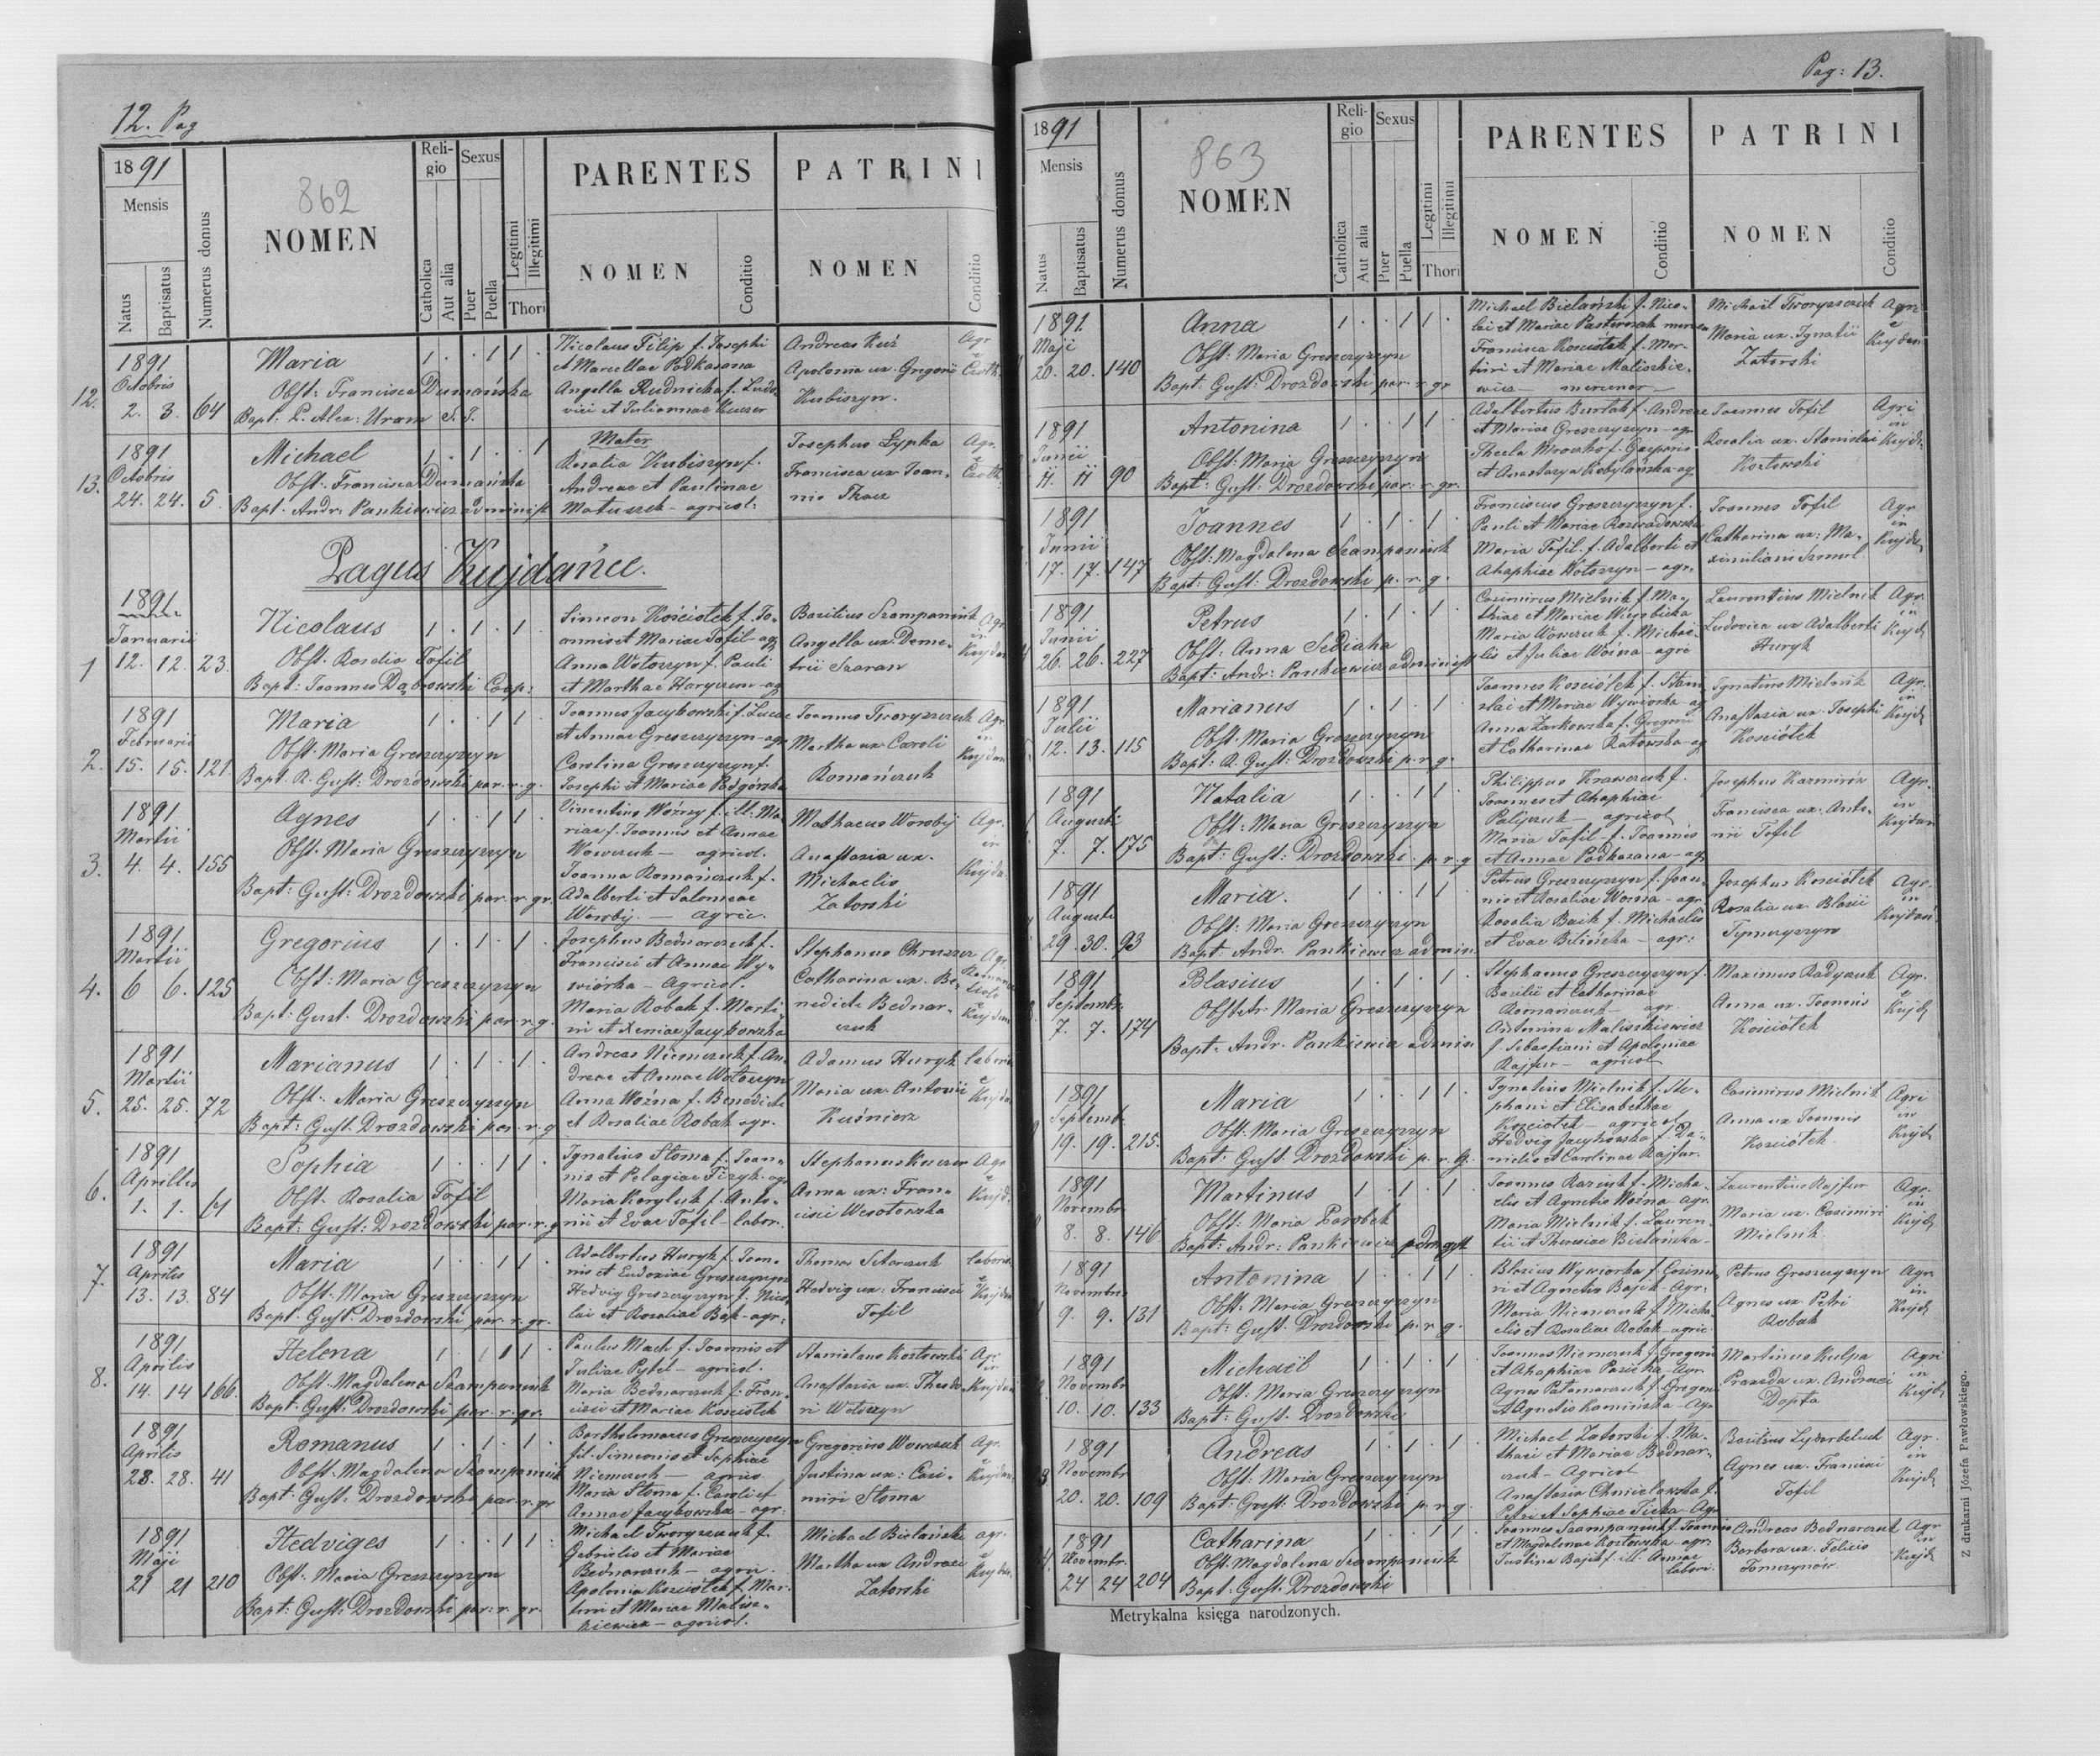 12. Pag
1891
Mensis
Natus
Baptisatus
Numerus domus
862
NOMEN
Religio
Catholica
Aut alia
Sexus
Puer
Puella
Legitimi
Illegitimi
Thori
PARENTES
NOMEN
Conditio
PATRINI
NOMEN
Conditio
12.
1891
Octobris
2. 3. 64
Maria
Obst: Francisca Dumańska
Bapt. P. Alex: Uram S. J.
Nicolaus Filip f. Josephi
et Marcellae Podkasana
Angella Rudnicka f. Ludo-
vici et Juliannae Kuczer
Andreas Kuź
Apolonia ux. Gregorii
Kubiszyn.
Agr
13.
1891
Octobris
24. 24. 5.
Michael
Obst. Francisca Dumańska
Bapt. Andr: Pankiewicz administ
Mater
Rosalia Kubiszyn f.
Andreae et Paulinae
Matuszek - agricol:
Josephus Łypka
Francisca ux. Joan-
nis Tkacz
Agr.
Pagus Kujdańce.
1
1891.
Januarii
12. 12. 23.
Nicolaus
Obst. Rosalia Tofil
Bapt: Joannes Dąbrowski Coop:
Simeon Kościołek f. Jo-
annis et Mariae Tofil - agr
Anna Wołoszyn f. Pauli
et Marthae Haryzem - ag
Basilius Szampaniuk
Angella ux. Deme-
trii Szaran
Agr.
in
Kujdan
2.
1891
Februarii
15. 15. 121.
Maria
Obst. Maria Greszczyszyn
Bapt. R. Gust: Drozdowski par. r. g.
Joannes Jacykowski f. Lucae
et Annae Greszczyszyn - agr
Carolina Greszczyszyn f.
Josephi et Mariae Podgórska
Joannes Tworyszczuk
Martha ux. Caroli
Romańczuk
Agr.
in
Kujdan
3.
1891
Martii
4. 4. 155
Agnes
Obst. Maria Greszczyszyn
Bapt: Gust: Drozdowski par. r. gr.
Vincentius Woźny f. ill. Ma-
riae f. Joannis et Annae
Wowczuk - agricol.
Joanna Romańczuk f.
Adalberti et Salomeae
Worobij. - agric.
Mathaeus Worobij
Anastasia ux.
Michaelis
Zatorski
Agr.
in
Kujda.
4.
1891
Martii
6 6. 125
Gregorius
Obst: Maria Greszczyszyn
Bapt: Gust. Drozdowski par. r. g.
Josephus Bednarczuk f.
Francisci et Annae Wy-
wiórka - Agricol.
Maria Robak f. Marti-
ni et Xeniae Jacykowska
Stephanus Chruszcz
Catharina ux. Be-
nedicti Bednar-
czuk
Agr.
Kujdan
5.
1891
Martii
25. 25. 72
Marianus
Obst: Maria Greszczyszyn
Bapt: Gust. Drozdowski par. r. g
Andreas Niemczuk f. An-
dreae et Annae Wołoszyn
Anna Woźna f. Benedicti
et Rosaliae Robak agr.
Adamus Huryk
Maria ux. Antonii
Kuśnierz
6.
1891
Aprilis
1. 1. 61
Sophia
Obst. Rosalia Tofil
Bapt: Gust: Drozdowski par. r. g
Ignatius Stoma f. Joan-
nis et Pelagiae Fizyk - agr
Maria Koryluk f. Anto-
nii et Evae Tofil - labor.
Stephanus Kuczer
Anna ux: Fran-
cisci Wesołowska
Agr
7.
1891
Aprilis
13. 13. 84
Maria
Obst: Maria Greszczyszyn
Bapt. Gust. Drozdowski par. r. gr.
Adalbertus Huryk f. Joan-
nis et Eudoxiae Greszczyszyn
Hedvig Greszczyszyn f. Nico-
lai et Rosaliae Bak - agr:
Thomas Sitarczuk
Hedvig ux. Francisci
Tofil
8.
1891
Aprilis
14. 14 166.
Helena
Obst. Magdalena Szampaniuk
Bapt. Gust: Drozdowski par. r. gr.
Paulus Mach f. Joannis et
Juliae Pytel - agricol.
Maria Bednarczuk f. Fran-
cisci et Mariae Kosciołek
Stanislaus Kozłowski
Anastasia ux. Theodo-
ri Wołoszyn
Agr
in
Kujdan
1891
Aprilis
28. 28. 41
Romanus
Obst. Magdalena Szampaniuk
Bapt. Gust: Drozdowski par. r. gr
Bartholomaeus Greszczyszyn
fil. Simeonis et Sophiae
Niemczuk - agrico
Maria Stoma f. Caroli et
Annae Jacykowska - agr.
Gregorius Wowczuk
Justina ux: Casi-
miri Stoma
Agr.
in
Kujdan.
1891
Maji
21 21 210
Hedviges
Obst: Maria Greszczyszyn
Bapt: Gust: Drozdowski par: r. gr.
Michael Tworyszczuk f.
Gabrielis et Mariae
Bednarczuk - agri.
Apolonia Kosciołek f. Mar-
tini et Mariae Malisz-
kiewicz - agricol.
Michael Bielański
Martha ux Andreae
Zatorski
agr.
Pag: 13.
1891
Mensis
Natus
Baptisatus
Numerus domus
863
NOMEN
Religio
Catholica
Aut alia
Sexus
Puer
Puella
Legitimi
Illegitimi
Thori
PARENTES
NOMEN
Conditio
PATRINI
NOMEN
Conditio
1891.
Maji
20. 20. 140
Anna
Obst: Maria Greszczyszyn
Bapt. Gust: Drozdowski par. r. gr
Michael Bielański f. Nico-
lai et Mariae Pasternak
Francisca Kosciołek f. Mar-
tini et Mariae Maliszkie-
wicz - mercenar
Michaël Tworyszczuk
Maria ux. Ignatii
Zatorski
Agri
1891
Junii
11. 11 90
Antonina
Obst: Maria Greszczyszyn
Bapt: Gust: Drozdowski par: r. gr.
Adalbertus Burlak f. Andreae
et Mariae Greszczyszyn - agr
Thecla Mroczko f. Gasparis
et Anastasya Kobylańska - ag.
Joannes Tofil
Rosalia ux. Stanislai
Kozłowski
Agri
in
Kujda
1891
Junii
17. 17. 147
Joannes
Obst: Magdalena Szampaniuk
Bapt: Gust: Drozdowski p. r. g.
Franciscus Greszczyszyn f.
Pauli et Mariae Rozwadowska
Maria Tofil. f. Adalberti et
Ahaphiae Wołoszyn - agr.
Joannes Tofil
Catharina ux: Ma-
ximiliani Szmul
Agr
in
Kujda
1891
Junii
26. 26. 227
Petrus
Obst: Anna Sediaha
Bapt: Andr: Pankiewicz administ
Casimirus Mielnik f. Ma-
thiae et Mariae
Maria Wowczuk f. Michae-
lis et Juliae Woźna - agri
Laurentius Mielnik
Ludovica ux Adalberti
Huryk
Agr.
in
Kujd
1891
Julii
12. 13. 115
Marianus
Obst: Maria Greszczyszyn
Bapt: R. Gust: Drozdowski p. r. g.
Joannes Kosciołek f. Stani-
slai et Mariae Wywiorka - ag
Anna Żarkowska f. Gregorii
et Catharinae Ratowska - ag
Ignatius Mielnik
Anastasia ux. Josephi
Kosciołek
Agr.
in
Kujd
1891
Augusti
7. 7. 175
Natalia
Obst: Maria Greszczyszyn
Bapt: Gust: Drozdowski. p. r. g
Philippus Krawczuk f.
Joannis et Ahaphiae
Palijczuk - agricol
Maria Tofil - f. Joannis
et Annae Podkasana - ag
Josephus Kazmirów
Francisca ux. Anto-
nii Tofil
Agr.
in
Kujdan
1891
Augusti
29. 30. 93
Maria.
Obst: Maria Greszczyszyn
Bapt: Andr. Pankiewicz admin.
Petrus Greszczyszyn f. Joan-
nis et Rosaliae Worna - agr
Rosalia Baik f. Michaelis
et Evae Bilińska - agr:
Josephus Kosciołek
Rosalia ux. Blasii
Tymczyszyn
Agr.
in
Kujdan
1891
Septembr.
7. 7. 174
Blasius
Obstetr. Maria Greszczyszyn
Bapt. Andr. Pankiewicz admin
Stephanus Greszczyszyn f.
Basilii et Catharinae
Romańczuk - agr.
Antonina Maliszkiewicz
f Sebastiani et Apoloniae
Rajfur - agricol
Maximus Radyszuk
Anna ux. Joannis
Kościołek
Agr.
1891
Septembr.
19. 19. 215.
Maria
Obst. Maria Greszczyszyn
Bapt. Gust. Drozdowski p. r. g.
Ignatius Mielnik f. Ste-
phani et Elisabethae
Kosciołek - agricol
Hedvig Jacykowska f. Da-
nielis et Carolinae Rajfur.
Casimirus Mielnik
Anna ux Joannis
Kosciołek
Agri
in
Kujd
1891
Novembr
8. 8. 146
Martinus
Obst: Maria Parobek
Bapt: Andr: Pankiewicz
Joannes f. Micha-
elis et Agnetis Woźna - agr.
Maria Mielnik f. Lauren-
tii et Theresiae Bielańska -
Laurentius Rajfur
Maria ux. Casimiri
Mielnik
Agr.
in
Kujd
1891
Novembris
9. 9. 131
Antonina
Obst: Maria Greszczyszyn
Bapt: Gust. Drozdowski p. r. g.
Blasius Wywiorka f. Casimi-
ri et Agnetis Bajik - Agr:
Maria Niemczuk f. Micha-
elis et Rosaliae Robak - agric.
Petrus Greszczyszyn
Agnes ux Petri
Robak
Agr
in
Kujd
1891
Novembr
10. 10. 133
Michaël
Obst: Maria Greszczyszyn
Bapt: Gust: Drozdowski
Joannes Niemczuk f. Gregorii
et Ahaphiae - Agr
Agnes f. Gregori
et Agnetis Kaminska - Agr
Martinus Kulpa
Praxeda ux. Andreae
Dopta
Agri
in
Kujd
1891
Novembr
20. 20. 109
Andreas
Obst. Maria Greszczyszyn
Bapt: Gust: Drozdowski p. r. g.
Michael Zatorski f. Ma-
thaei et Mariae Bednar-
czuk - Agricol
Anastasia Chmielowska f.
Petri et Sophiae - Agr
Basilius
Agnes ux. Francisci
Tofil
Agr.
in
Kujd
1891
Novembr.
24 24 204
Catharina
Obst. Magdalena Szampaniuk
Bapt: Gust: Drozdowski
Joannes Szampaniuk f. Joannis
et Magdalenae Kozłowska - agr.
Justina Bajik f. ill. Annae
labori.
Andreas Bednarczuk
Barbara ux. Felicis
Tomczynów
Agr
in
Kujd
Metrykalna księga narodzonych.
Z drukarni Józefa Pawłowskiego.